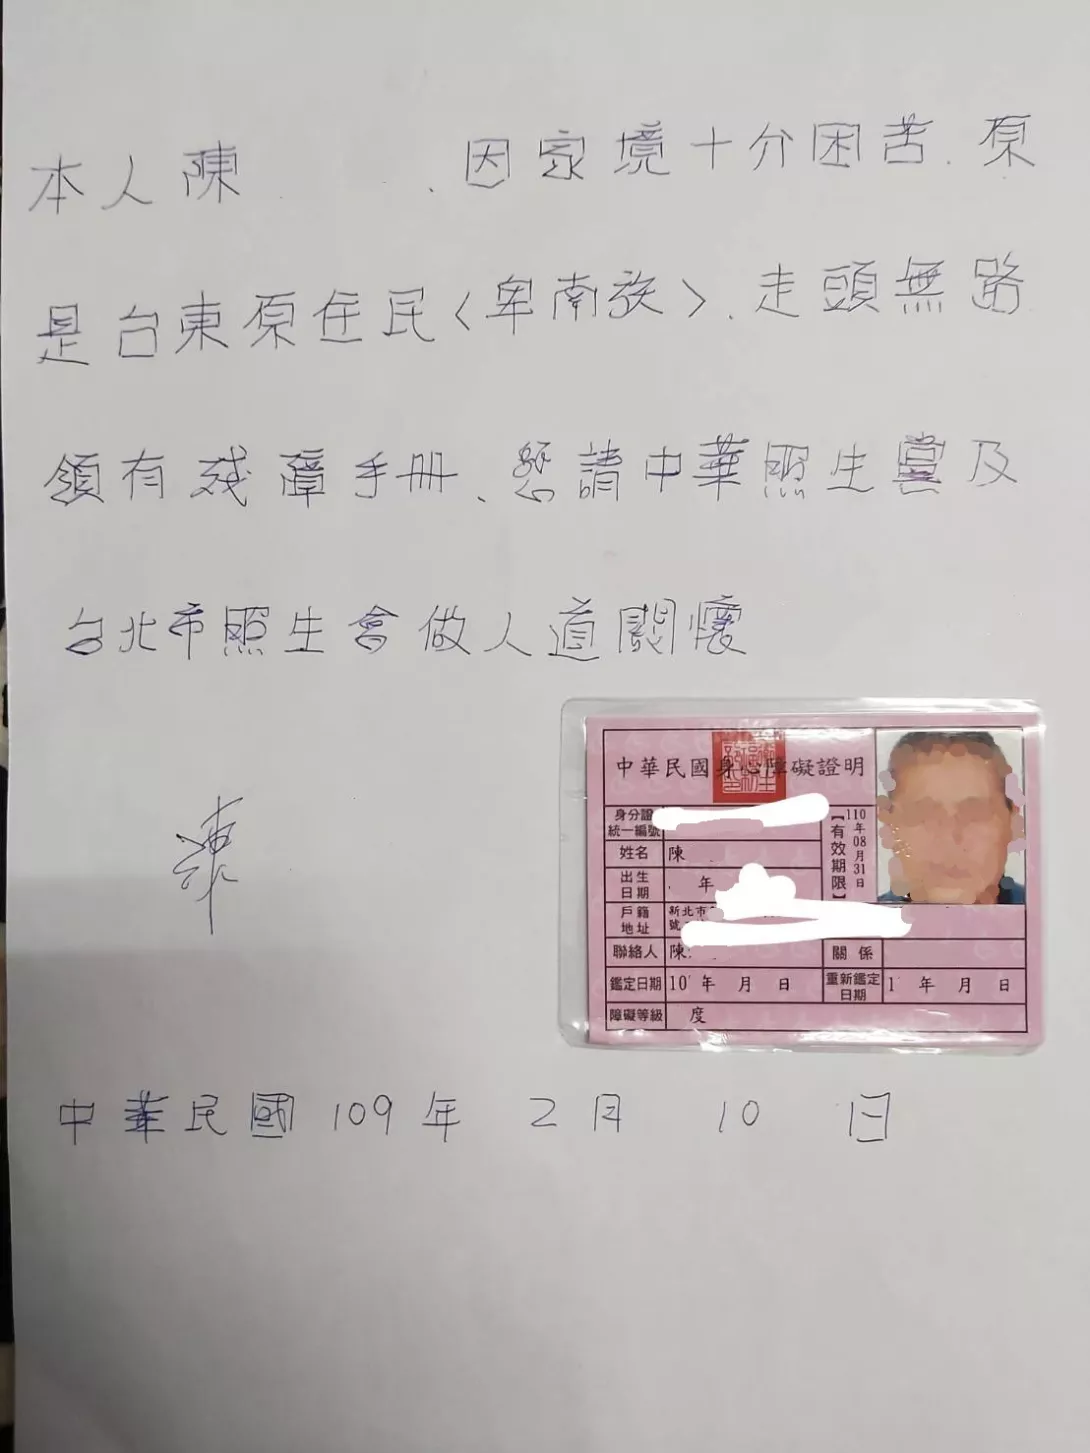 本人陳 、因家境十介困苦、原
是台東原住民〈卑南族〉、走頭無路
領有殘障手冊、懇請中華照生黨及
台北市照生會做人道關懷
中華民國身心障礙證明
身分證
統一編號
姓名 陳
出生
日期 年
【有效期限】 110年08月31日
戶籍
地址 新北市
號
聯絡人 陳 關係
鑑定日期 10 年 月 日 重新鑑定
日期 1 年 月 日
障礙等級 度
陳
中華民國 109年 2月 10 日